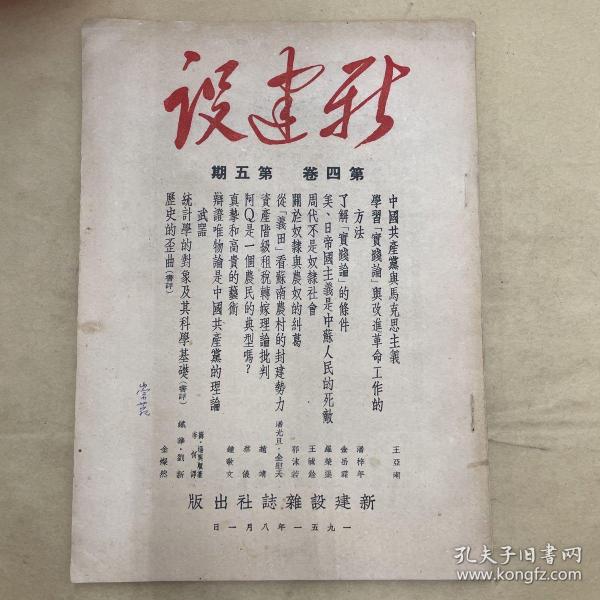 新建设
第四卷 第五期
中國共產黨與馬克思主義 王亞南
學習「實踐論」與改進革命工作的
方法 潘梓年
了解「實踐論」的條件 金岳霖
美、日帝國主義是中蘇人民的死敵 羅榮渠
周代不是奴隸社會 王毓銓
關於奴隸與農奴的糾葛 郭沫若
從「義田」看蘇南農村的封建勢力 潘光旦·全慰天
資產階級租稅轉嫁理論批判 趙靖
阿Q是一個農民的典型嗎? 蔡儀
真摯和高貴的藝術 鍾敬文
辯證唯物論是中國共產黨的理論
武器
統計學的對象及其科學基礎(書評) 鐵華·劉新
歷史的歪曲(書評) 金燦然
新建設雜誌社出版
一九五一年八月一日
孔夫子旧书网
www.kongfz.com